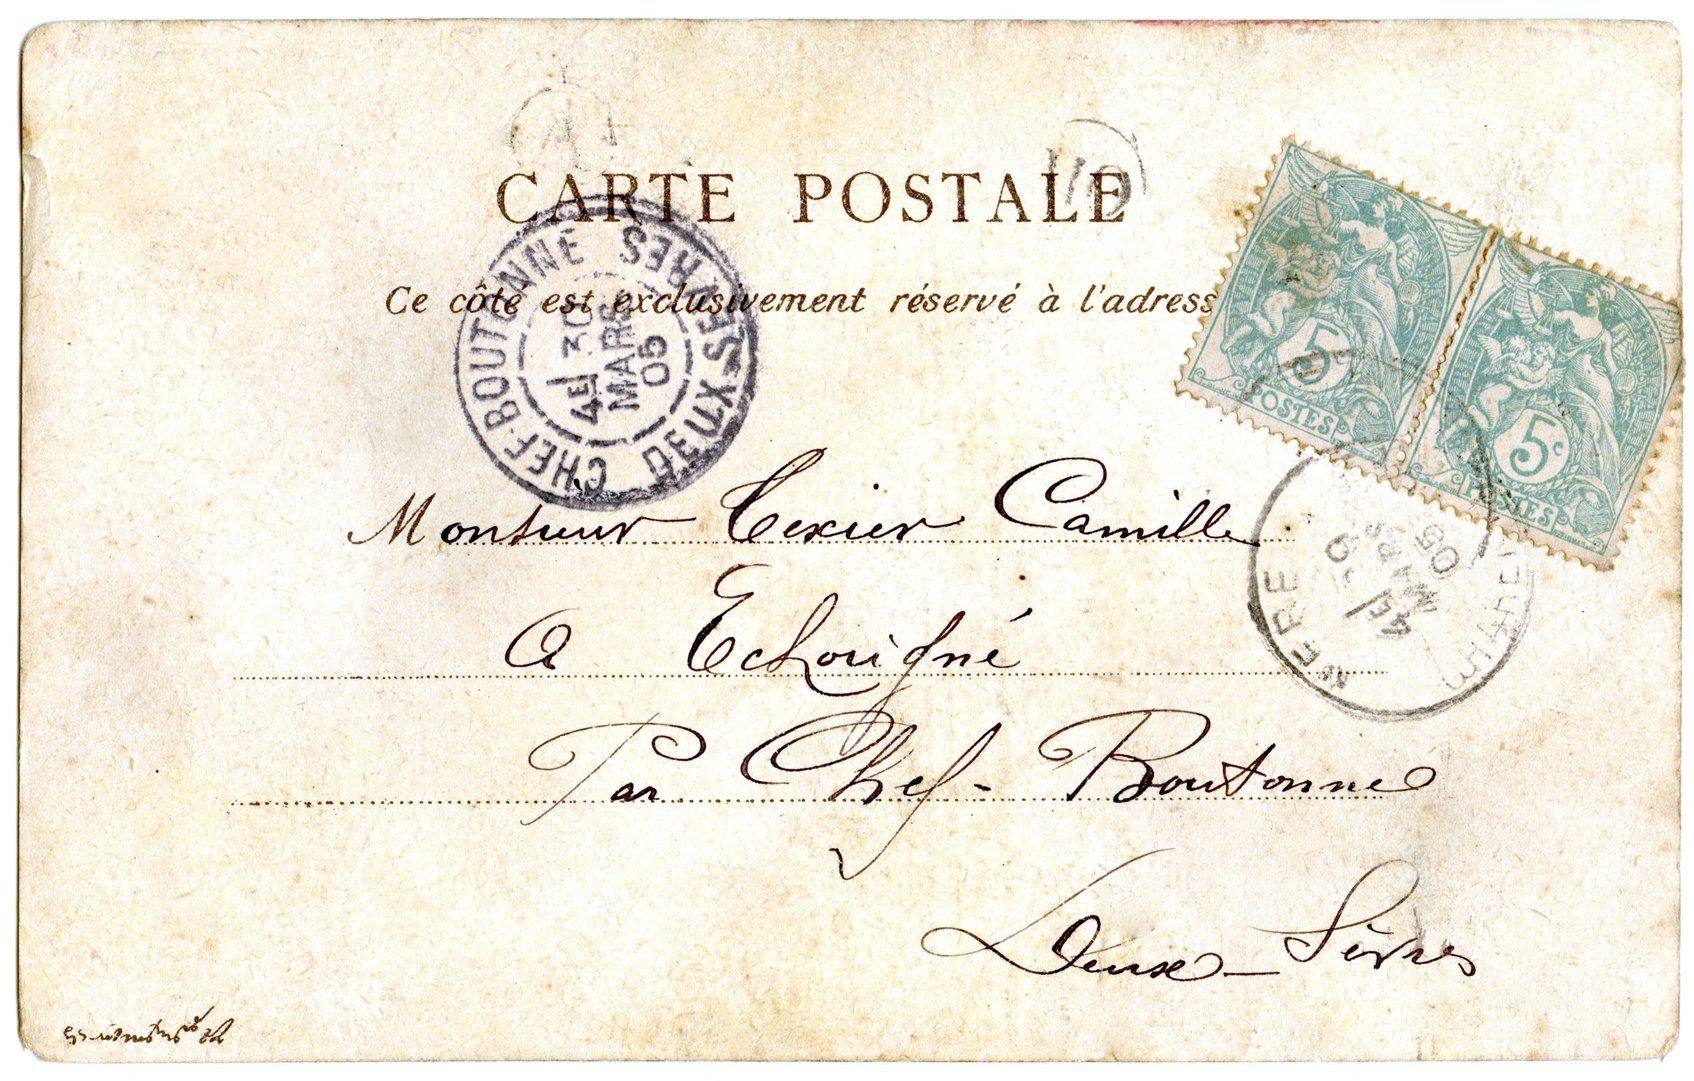 CARTE POSTALE
Ce côté est exclusivement réservé à l'adress
CHEF-BOUTONNE DEUX-SÈVRES
4E 30
MARS
05
5
POSTES
5c
POSTES
4E
05
Monsieur Texier Camille
à Echorigné
Par Chef-Boutonne
Deux-Sèvres